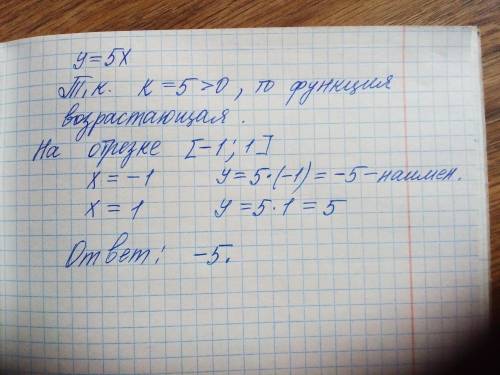 y=5x
Т,к. к=5>0, то функция
возрастающая.
На отрезке [-1; 1]
x=-1 y=5·(-1)=-5-наимен.
x=1 y=5·1=5
Ответ: -5.